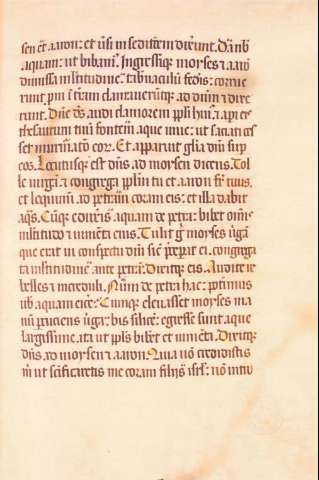 sen et aaron: et ūsi in seditem dixerunt. Da nob
aquam: ut bibam. Ingressusq; moyses et aaro
dimissa multitudine. tabnaculū fedis: corrue
runt pni ī tram clamaverūtq; ad dūm et dixe
runt. Dñe ds audi clamorem ppli hui: et api eis
thesaurum tuū fontem aque vive: ut saciati ces
set murmatō eor. Et apparuit glia dni sup
eos. Locutusq; est dñs ad moysen dicens. Tol
le virgā et congrega pplm tu et aaron fr tuus.
et loqumi ad petram coram eis: et illa dabit
aqs. Cūq; eduxeris aquam de petra: bibet omis
multitudo et iumēta eius. Tulit g moyses ūgā
que erat in conspectu dni sic pcepat ei. congrega
ta multitudine ante petrā. Dixitq; eis. Audite re
belles et increduli. Num de petra hac: potimus
vob aquam eice: Cumq; elevasset moyses ma
nū pcuciens ūga: bis silicē: egresse sunt aque
largissime. ita ut ppls bibet et iumēta. Dixitq;
dñs ad moysen et aaron. Quia nō credidistis
m ut scificaretis me coram filijs isrl: nō intro